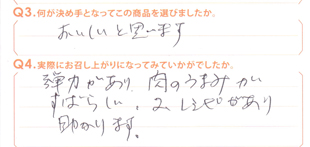 Q3.何が決め手となってこの商品を選びましたか。
おいしいと思います
Q4.実際にお召し上がりになってみていかがでしたか。
弾力があり 肉のうまみが
すばらしい、 レシピがあり
助かります。